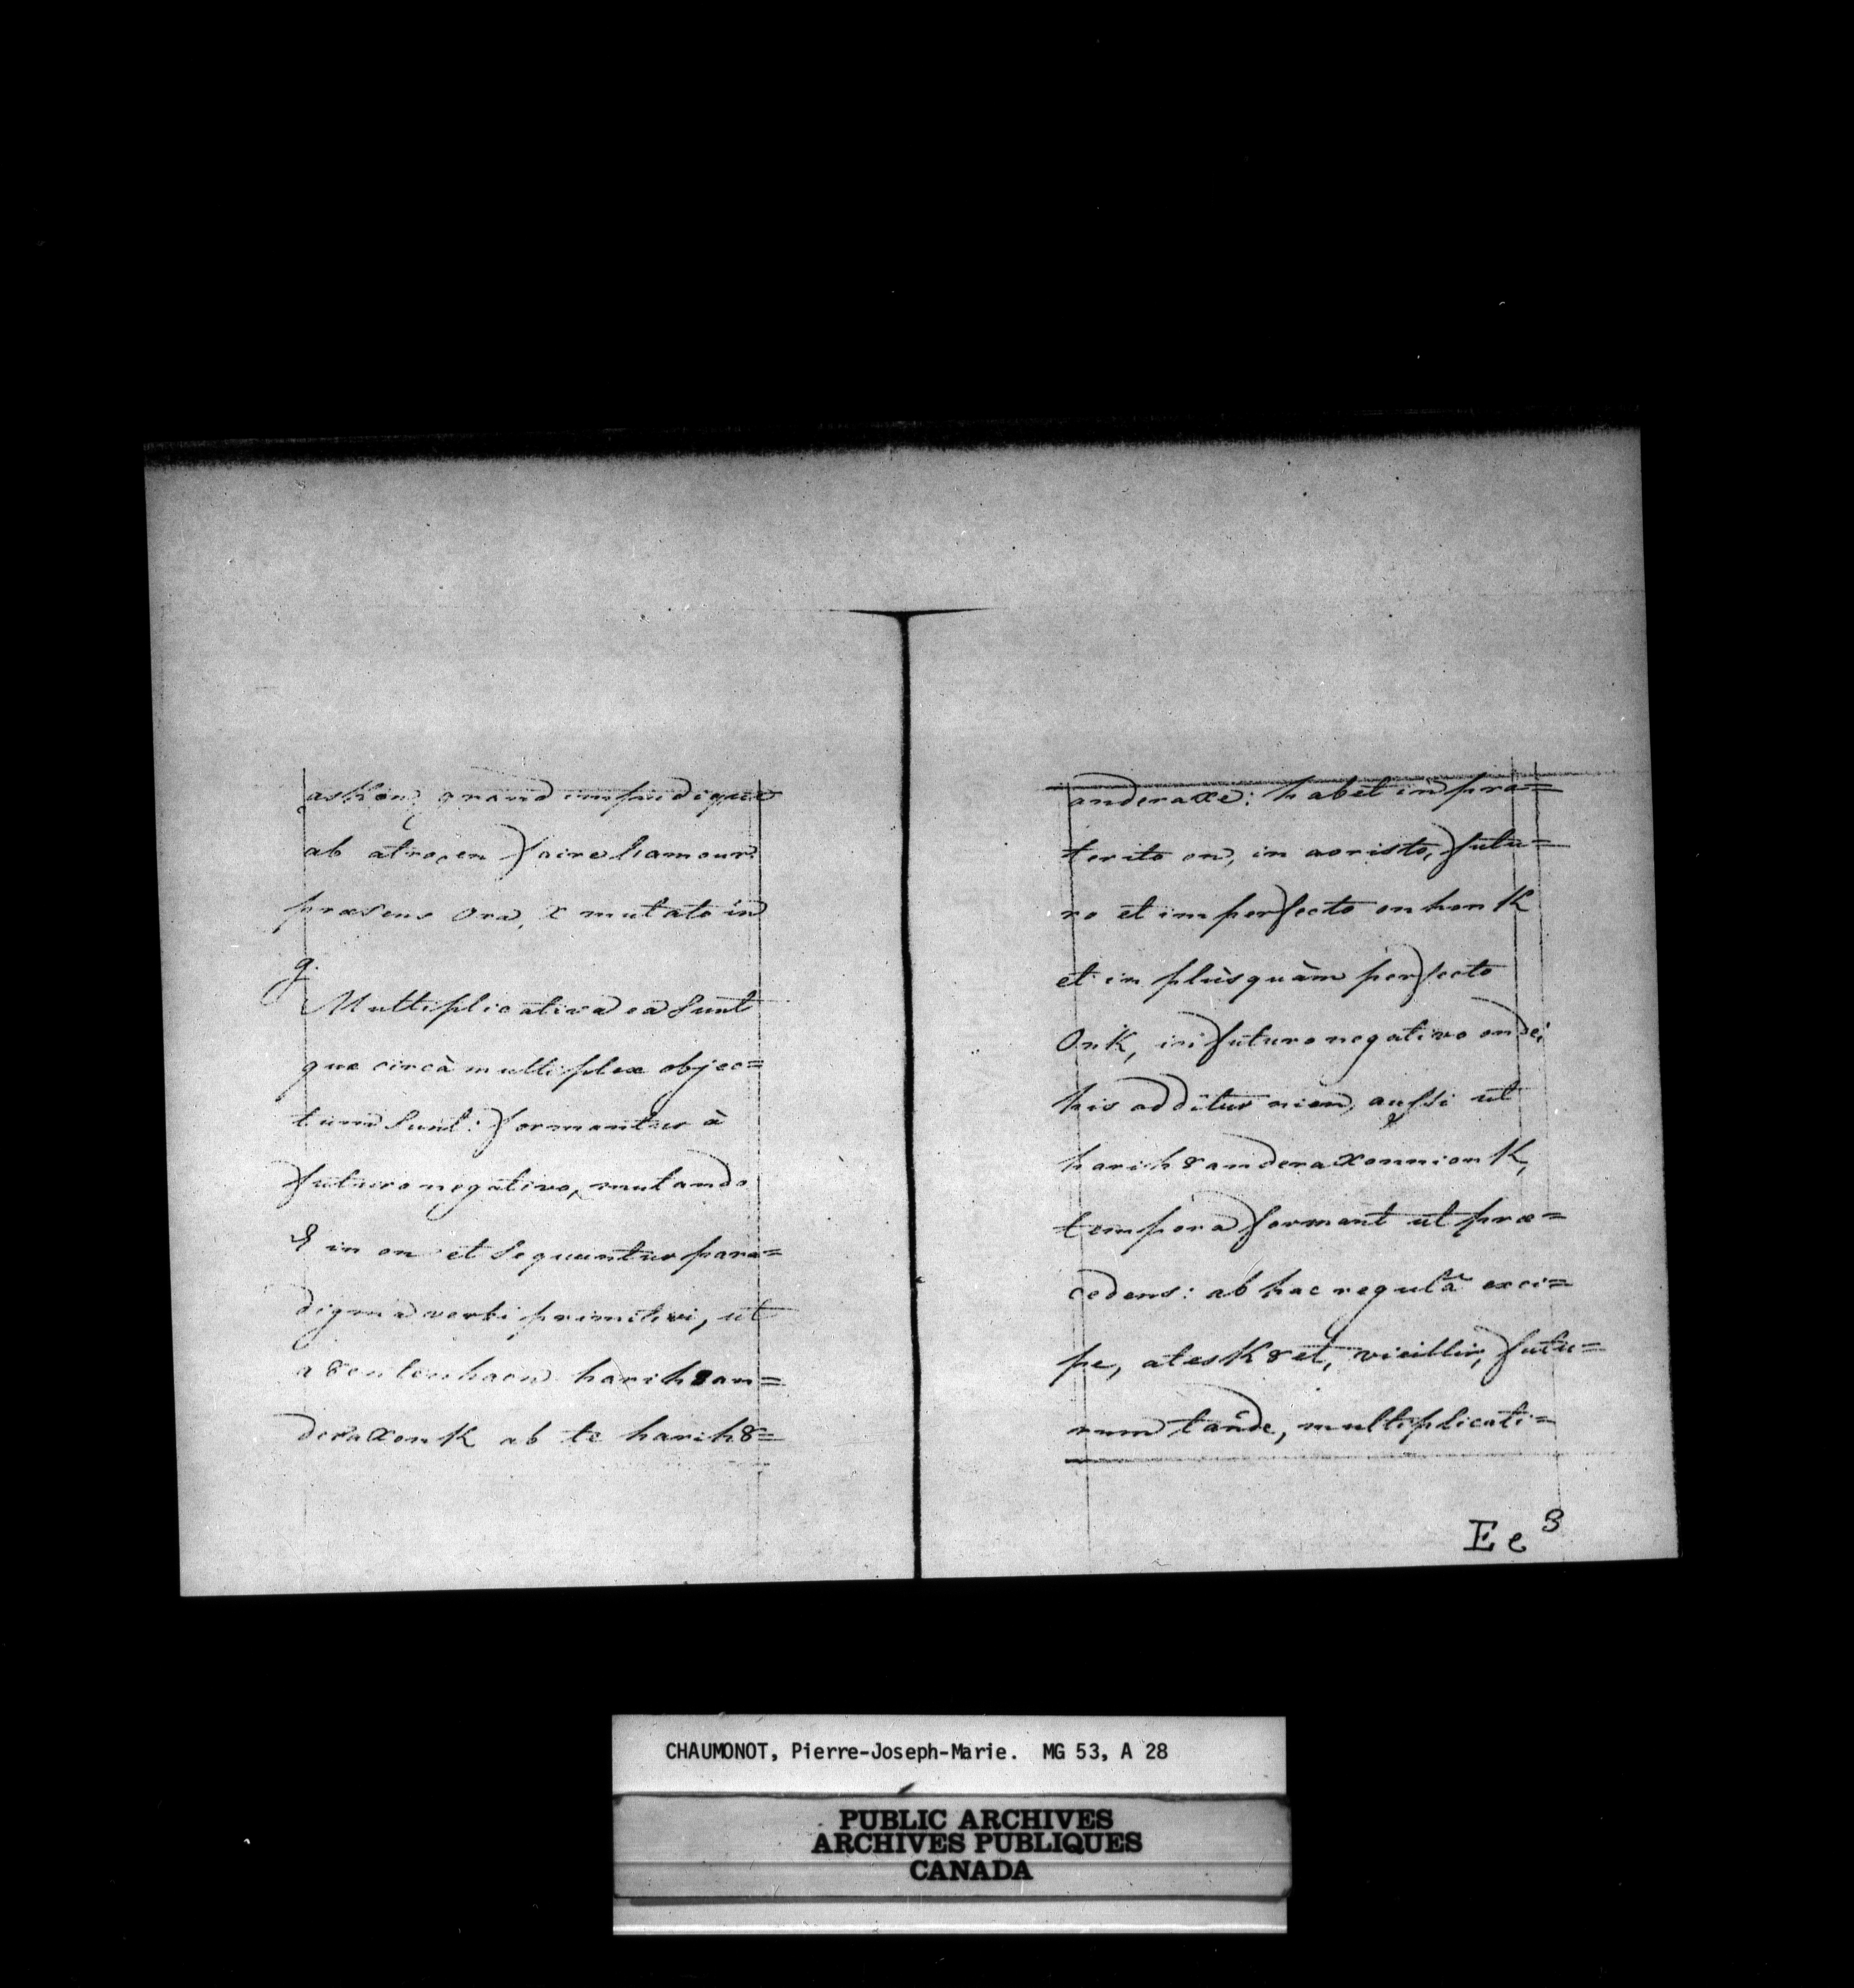 askon, grand impudique
ab atrogen faire l'amour
præsens ora, x mutato in
g.
Multiplicativa ea sunt
quæ circà multiplex objec=
tum sunt: formantur à
futuro negativo, mutando
E in on et sequuntur para=
digma verbi primitivi, ut
harih8an=
deraxonk ab te harih8=
anderaxe: habet in præ=
terito on, in aoristo, futu=
ro et imperfecto onhonk
et in plùsquàm perfecto
Onk, in futuro negativo ondei
his additur nion, aussi ut
harih8anderaxonnionk,
tempora formant ut præ=
cedens: ab hac regulâ exci=
pe, atesk8et, vieillir, futu=
rum tande, multiplicati=
Ee 3
CHAUMONOT, Pierre-Joseph-Marie. MG 53, A 28
PUBLIC ARCHIVES
ARCHIVES PUBLIQUES
CANADA